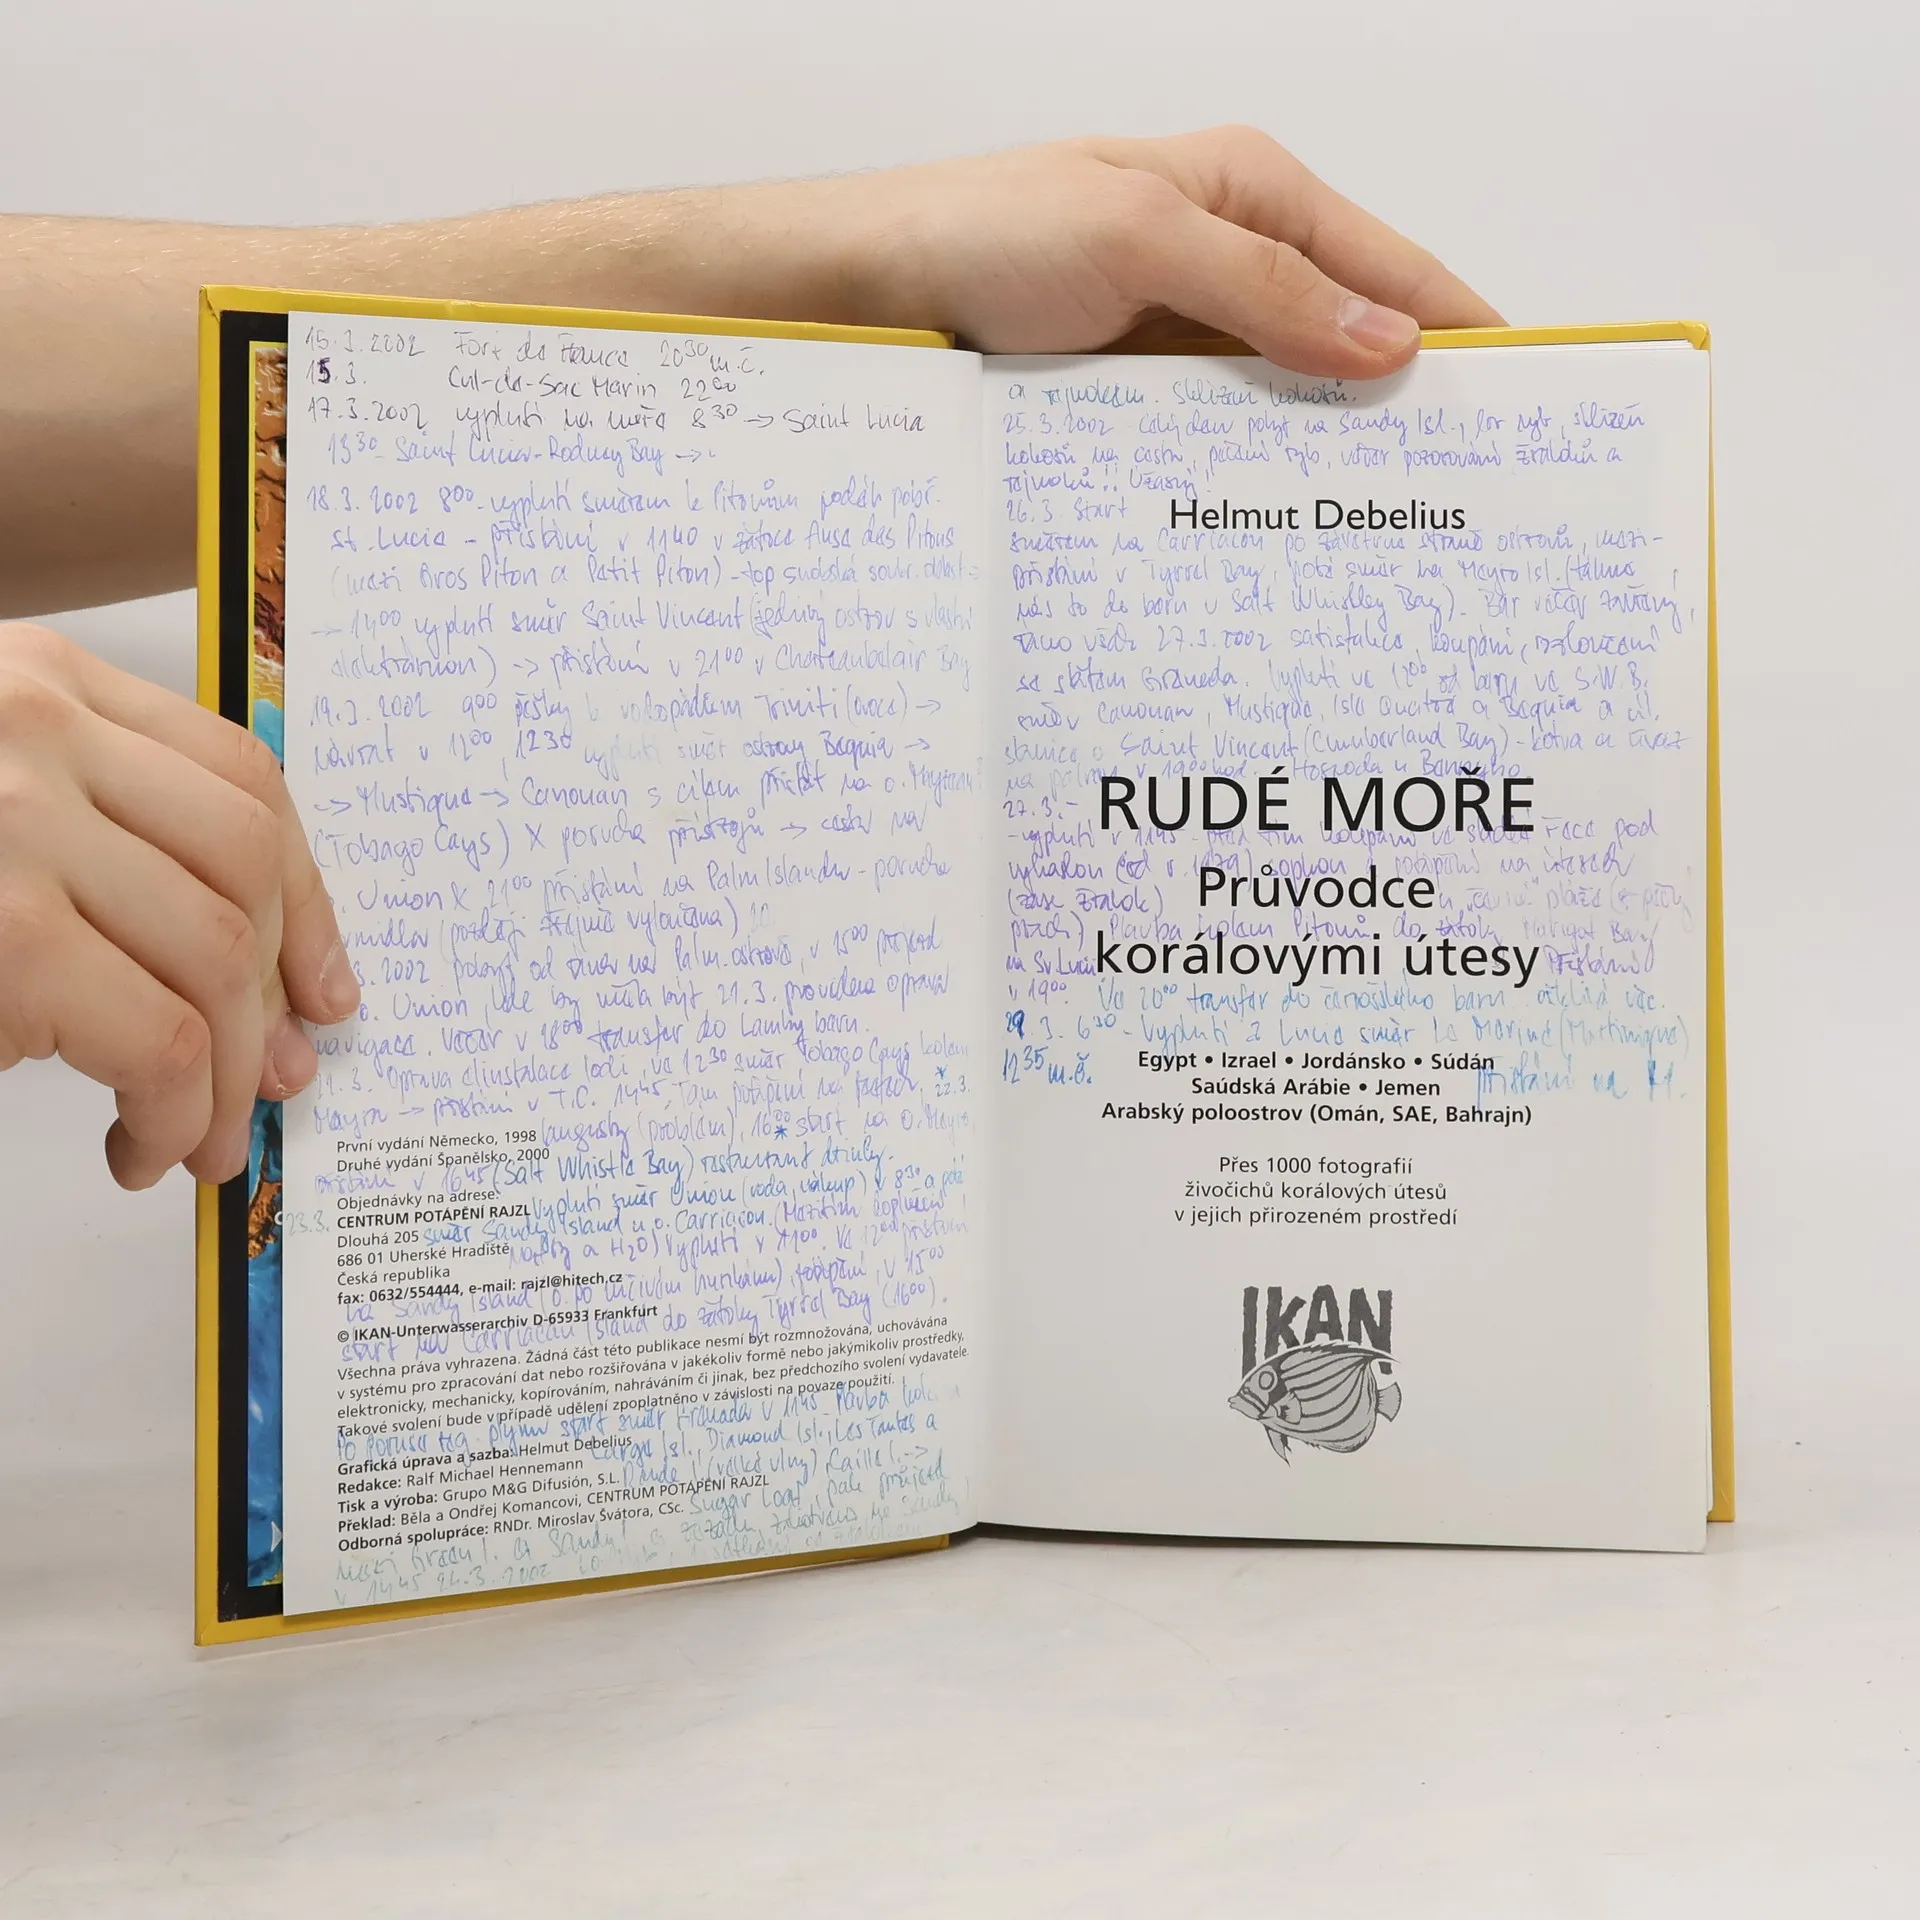 15.3.2002 Fort de France 20³⁰ m.č.
15.3. Cul-de-Sac Marin 22⁰⁰
17.3.2002 vyplutí na moře 8³⁰ → Saint Lucia
13³⁰ Saint Lucia - Rodney Bay →
18.3.2002 8⁰⁰ - vyplutí směrem k Pitonům podél pobř.
St. Lucia - přistání v 11⁴⁰ v zátoce Anse des Pitons
(mezi Gros Piton a Petit Piton) - top
→ 14⁰⁰ vyplutí směr Saint Vincent (jediný ostrov s vlastní
elektrárnou) → přistání v 21⁰⁰ v Chateaubelair Bay
19.3.2002 9⁰⁰ pěšky k vodopádům Triniti (ovoce) →
návrat v 12⁰⁰, 12³⁰ vyplutí směr ostrovy Bequia →
→ Mustique → Canouan s cílem přistát na o.
(Tobago Cays) X porucha přístrojů → cesta na
Union X 21⁰⁰ přistání na Palm Islandu - porucha
(později zřejmě vyloučena)
3.2002 pobyt od rána na Palm. ostrově, v 15⁰⁰ přejezd
o. Union, kde by měla být 21.3. provedena oprava
navigace. Večer v 18⁰⁰ transfer do Lamby baru.
21.3. Oprava elinstalace lodi, ve 12³⁰ směr Tobago Cays kolem
Mayra → přistání v T.C. 14⁴⁵. Tam potápění na * 22.3.
langusty (problém), 16⁰⁰ * start na o. Mayro,
První vydání Německo, 1998
Druhé vydání Španělsko, 2000
přistání v 16⁴⁵ (Salt Whistle Bay) restaurant drinky.
Objednávky na adrese:
23.3. Vyplutí směr Union (voda, nákup) v 8³⁰ a poté
CENTRUM POTÁPĚNÍ RAJZL
Dlouhá 205 směr Sandy Island u o. Carriacou. (Mezitím doplnění
686 01 Uherské Hradiště nafty a H₂O) vyplutí v 11⁰⁰. Ve 12⁰⁰ přistání
Česká republika
fax: 0632/554444, e-mail: rajzl@hitech.cz
na Sandy Island (o. po ničivém hurikánu), potápění, v 15⁰⁰
© IKAN-Unterwasserarchiv D-65933 Frankfurt
start na Carriacou Island do zátoky Tyrrel Bay (16⁰⁰).
Všechna práva vyhrazena. Žádná část této publikace nesmí být rozmnožována, uchovávána
v systému pro zpracování dat nebo rozšiřována v jakékoliv formě nebo jakýmikoliv prostředky,
elektronicky, mechanicky, kopírováním, nahráváním či jinak, bez předchozího svolení vydavatele.
Takové svolení bude v případě udělení zpoplatněno v závislosti na povaze použití.
Po poruše reg. plynu start směr Grenada v 11⁴⁵. Plavba kolem
Grafická úprava a sazba: Helmut Debelius
Large Isl., Diamond Isl., Les Tantes a
Redakce: Ralf Michael Hennemann
Ronde I. (velké vlny), Caille I. →
Tisk a výroba: Grupo M&G Difusión, S.L.
Překlad: Běla a Ondřej Komancovi, CENTRUM POTÁPĚNÍ RAJZL
Sugar Loaf, pak průjezd
Odborná spolupráce: RNDr. Miroslav Švátora, CSc.
mezi Green I. a Sandy I. a
v 14⁴⁵ 24.3.2002
a rejnokem. Sklízení kokosů.
25.3.2002 celý den pobyt na Sandy Isl., lov ryb, sklízení
kokosů na cestu, pečení ryb, večer pozorování žraloků a
rejnoků!! Úžasný!
26.3. Start
Helmut Debelius
směrem na Carriacou po závětrné straně ostrovů, mezi-
přistání v Tyrrel Bay, poté směr na Mayro Isl. (táhne
nás to do baru v Salt Whistley Bay). Bar večer zavřený,
ráno však 27.3.2002 satisfakce, koupání, rozloučení
se státem Grenada. Vyplutí ve 12⁰⁰ od baru ve S.W.B.
směr Canouan, Mustique, Isle Quatre a Bequia a cíl.
stanice o. Saint Vincent (Cumberland Bay) - kotva a úvaz
na palmu v 19⁰⁰ hod. Hospoda u Bennyho.
RUDÉ MOŘE
27.3. -
- vyplutí v 11⁴⁵ - před tím koupání ve sladké řece pod
vyhaslou (od r. 1979) sopkou a potápění na útesech
(zase žralok) u "černé" pláže
Průvodce
Plavba kolem Pitonů do zátoky Marigot Bay
korálovými útesy
na Sv. Lucii Přistání
v 19⁰⁰. Ve 20⁰⁰ transfer do černošského baru
29.3. 6³⁰ - Vyplutí z Lucie směr Le Marine (Martinique)
12³⁵ m.č. přistání na
Egypt • Izrael • Jordánsko • Súdán
Saúdská Arábie • Jemen
Arabský poloostrov (Omán, SAE, Bahrajn)
Přes 1000 fotografií
živočichů korálových útesů
v jejich přirozeném prostředí
IKAN